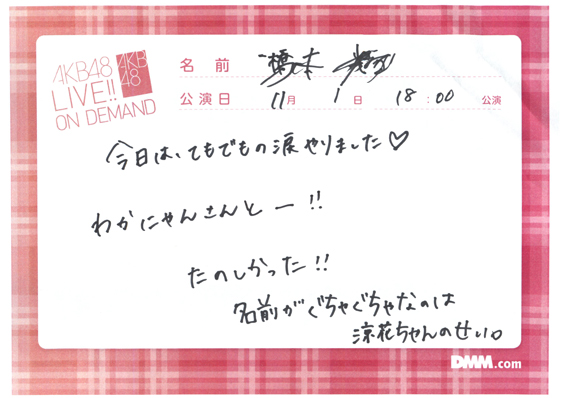 AKB48
LIVE!!
ON DEMAND
AKB
48
名 前 橋本
公演日 11月 1日 18:00 公演
今日は、てもでもの涙やりました♡
わかにゃんさんとー!!
たのしかった!!
名前がぐちゃぐちゃなのは
涼花ちゃんのせい。
DMM.com